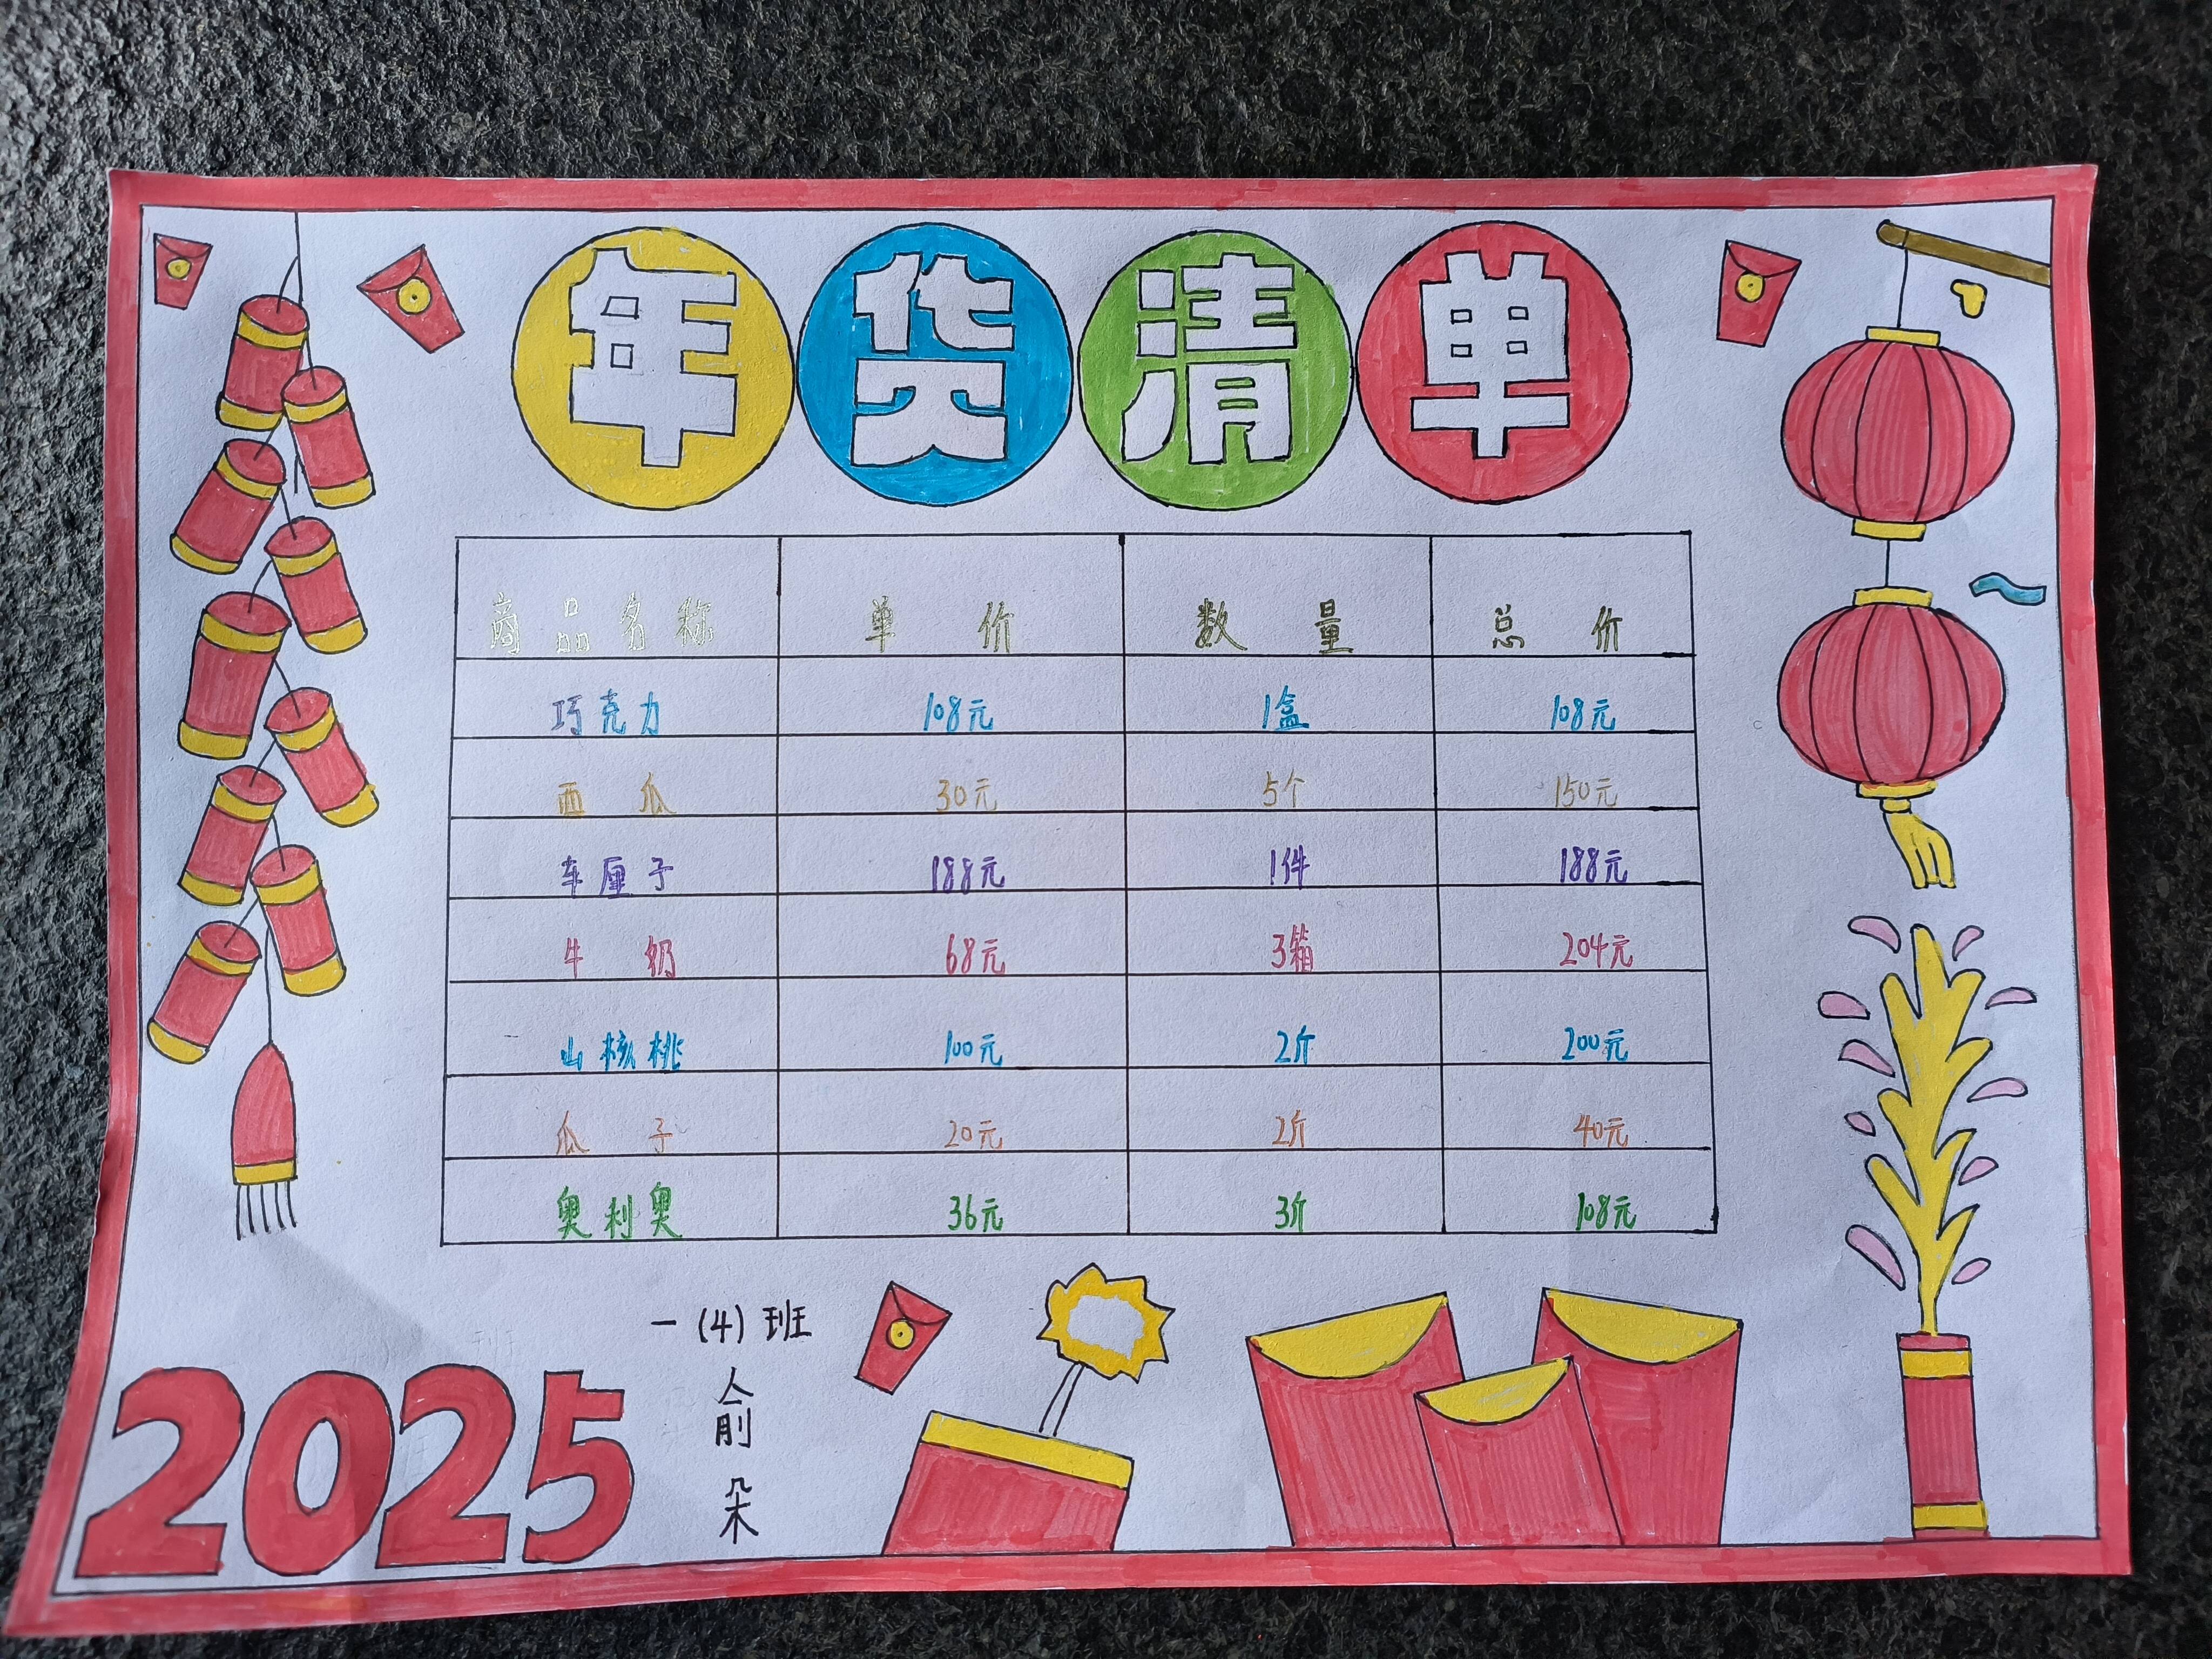 年货清单
商品名称 单价 数量 总价
巧克力 108元 1盒 108元
西瓜 30元 5个 150元
车厘子 188元 1件 188元
牛奶 68元 3箱 204元
山核桃 100元 2斤 200元
瓜子 20元 2斤 40元
奥利奥 36元 3斤 108元
一(4)班
俞朵
2025